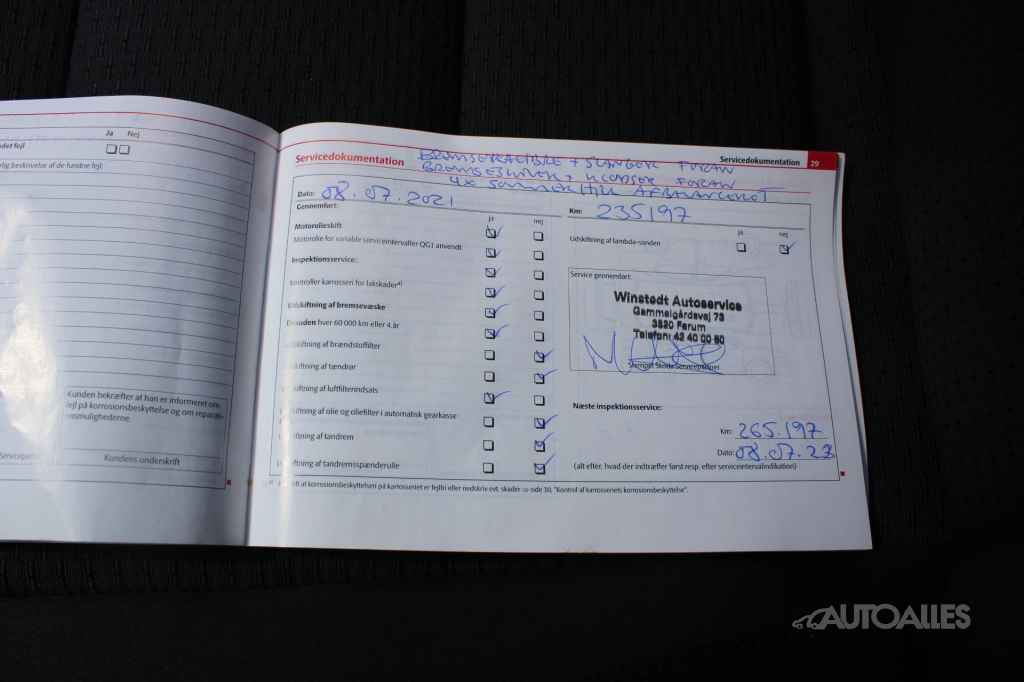 Ja Nej
det fejl
lig beskrivelse af de fundne fejl:
Kunden bekræfter at han er informeret om
fejl på korrosionsbeskyttelse og om reparati-
onsmulighederne.
Servicepartner
Kundens underskrift
Servicedokumentation
BREMSEKALIBRE + SLANGER FORAN
Servicedokumentation 29
BREMSESKIVER + KLODSER FORAN
4x SOMMERHJUL AFBALANCERET
Dato: 08.07.2021
Km: 235197
Gennemført:
ja nej
ja nej
Motorolieskift
Motorolie for variable serviceintervaller QG1 anvendt
Udskiftning af lambda-sonden
Inspektionsservice:
Kontroller karrosseri for lakskader a)
Udskiftning af bremsevæske
Desuden hver 60 000 km eller 4.år
Udskiftning af brændstoffilter
Udskiftning af tændrør
Udskiftning af luftfilterindsats
Udskiftning af olie og oliefilter i automatisk gearkasse
Udskiftning af tandrem
Udskiftning af tandremsspænderulle
Service gennemført:
Winstedt Autoservice
Gammelgårdsvej 73
3520 Farum
Telefon: 42 40 00 50
Stempel Skoda Servicepartner
Næste inspektionsservice:
Km: 265.197
Dato: 08.07.23
(alt efter, hvad der indtræffer først resp. efter serviceintervalindikation)
at korrosionsbeskyttelsen på karrosseriet er fejlfri eller nedskriv evt. skader ⇨ side 30, "Kontrol af karrosseriets korrosionsbeskyttelse".
AUTOALLES